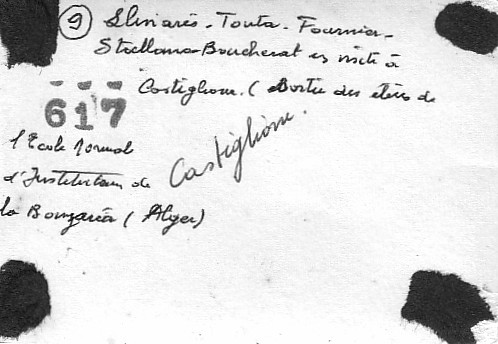 9 Llinarès - Touta - Fournier -
Stellama - Boucherat en visite à
Castiglione. (Sortie des élèves de
617
l'École Normale
d'Instituteurs de
Castiglione.
la Bouzaréa (Alger)